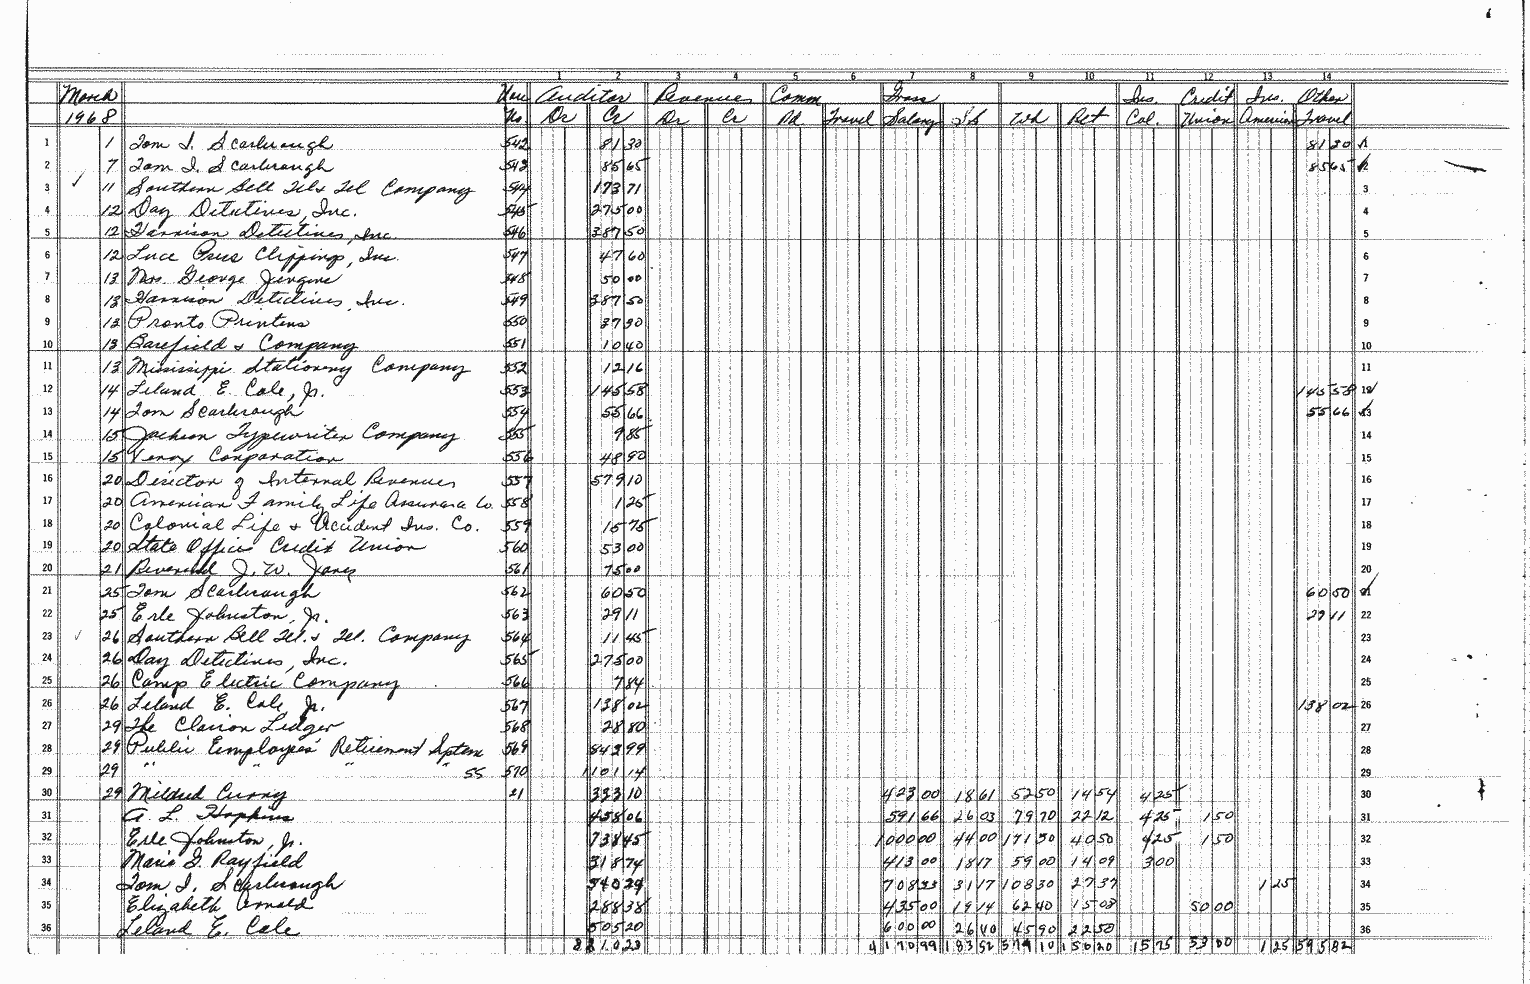 1 2 3 4 5 6 7 8 9 10 11 12 13 14
March Auditor Revenues Comm Gross Ins. Credit Ins. Other
1968 No. Dr Cr Dr Cr Pd Travel Salary SS Wh Ret Col. Union American Travel
1 1 Tom I. Scarbrough 542 81 30 81 30 1
2 7 Tom I. Scarbrough 543 85 65 85 65 2
3 11 Southern Bell Tel & Tel Company 544 173 71 3
4 12 Day Detectives, Inc. 545 275 00 4
5 12 Harrison Detectives, Inc. 546 387 50 5
6 12 Luce Press Clippings, Inc. 547 47 60 6
7 13 Mrs. George 548 50 00 7
8 13 Harrison Detectives, Inc. 549 387 50 8
9 13 Pronto Printers 550 37 90 9
10 13 Barefield & Company 551 10 40 10
11 13 Mississippi Stationery Company 552 12 16 11
12 14 Leland E. Cole, Jr. 553 145 58 145 58 12
13 14 Tom Scarbrough 554 55 66 55 66 13
14 15 Jackson Typewriter Company 555 9 85 14
15 15 Xerox Corporation 556 48 90 15
16 20 Director of Internal Revenue 557 579 10 16
17 20 American Family Life Assurance Co. 558 1 25 17
18 20 Colonial Life & Accident Ins. Co. 559 15 75 18
19 20 State Offices Credit Union 560 53 00 19
20 21 Reverend J. W. Jones 561 75 00 20
21 25 Tom Scarbrough 562 60 50 60 50 21
22 25 Erle Johnston, Jr. 563 29 11 29 11 22
23 26 Southern Bell Tel. & Tel. Company 564 11 45 23
24 26 Day Detectives, Inc. 565 275 00 24
25 26 Camp Electric Company 566 7 84 25
26 26 Leland E. Cole, Jr. 567 138 02 138 02 26
27 29 The Clarion Ledger 568 28 80 27
28 29 Public Employees' Retirement System 569 542 99 28
29 29 " " " " SS 570 1101 14 29
30 29 Mildred Curry 21 333 10 423 00 18 61 52 50 14 54 4 25 30
31 A. L. Hopkins 458 06 591 66 26 03 79 70 22 12 4 25 1 50 31
32 Erle Johnston, Jr. 738 45 1000 00 44 00 171 30 40 50 4 25 1 50 32
33 Marie G. Rayfield 318 74 413 00 18 17 59 00 14 09 3 00 33
34 Tom I. Scarbrough 540 24 708 33 31 17 108 30 27 37 1 25 34
35 Elizabeth Arnold 288 38 435 00 19 14 62 40 15 08 50 00 35
36 Leland E. Cole 505 20 600 00 26 40 45 90 22 50 36
4170 99 183 52 579 10 156 20 15 75 53 00 1 25 595 82